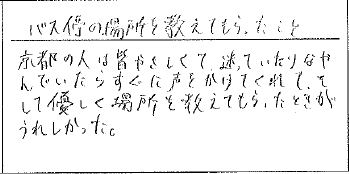 バス停の場所を教えてもらったこと
京都の人は皆やさしくて、迷っていたりなや
んでいたらすぐに声をかけてくれて、そ
して優しく場所を教えてもらったときが
うれしかった。